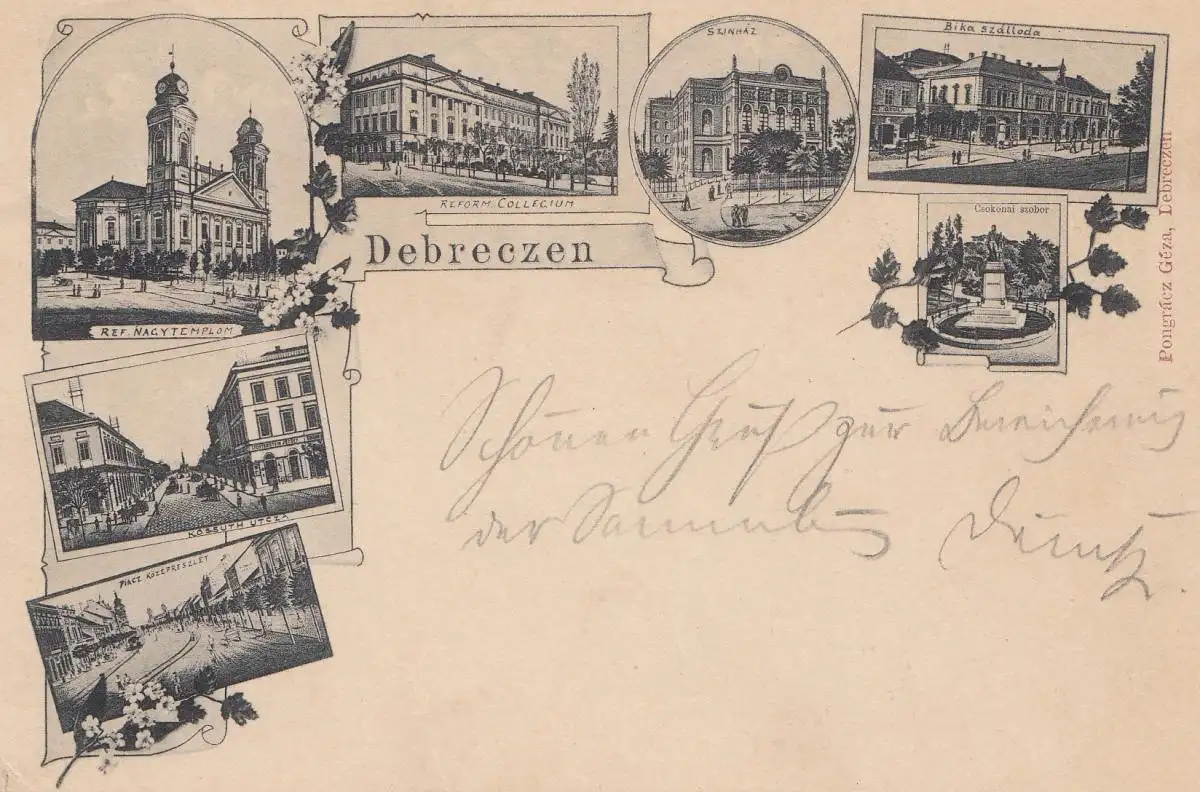 SZINHÁZ
Bika szálloda
REFORM. COLLEGIUM
Csokonai szobor
Debreczen
REF. NAGYTEMPLOM
Pongrácz Géza, Debreczen
KOSSUTH UTCZA
PIACZ KÖZÉPRÉSZLET
Schönen Gruß zur Bereicherung
der Sammlung